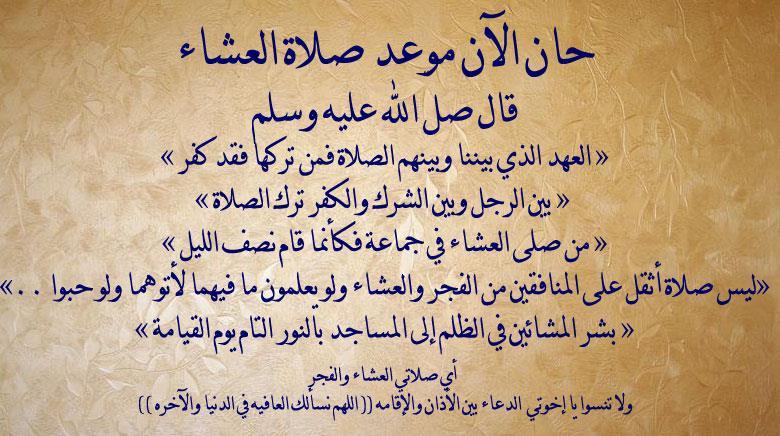 حان الآن موعد صلاة العشاء
قال صل الله عليه وسلم
« العهد الذي بيننا وبينهم الصلاة فمن تركها فقد كفر »
« بين الرجل وبين الشرك والكفر ترك الصلاة »
« من صلى العشاء في جماعة فكأنما قام نصف الليل »
«ليس صلاة أثقل على المنافقين من الفجر والعشاء ولو يعلمون ما فيهما لأتوهما ولو حبوا . . »
« بشر المشائين في الظلم إلى المساجد بالنور التام يوم القيامة »
أي صلاتي العشاء والفجر
ولا تنسوا يا إخوتي الدعاء بين الأذان والإقامه (( اللهم نسألك العافيه في الدنيا والآخره ))